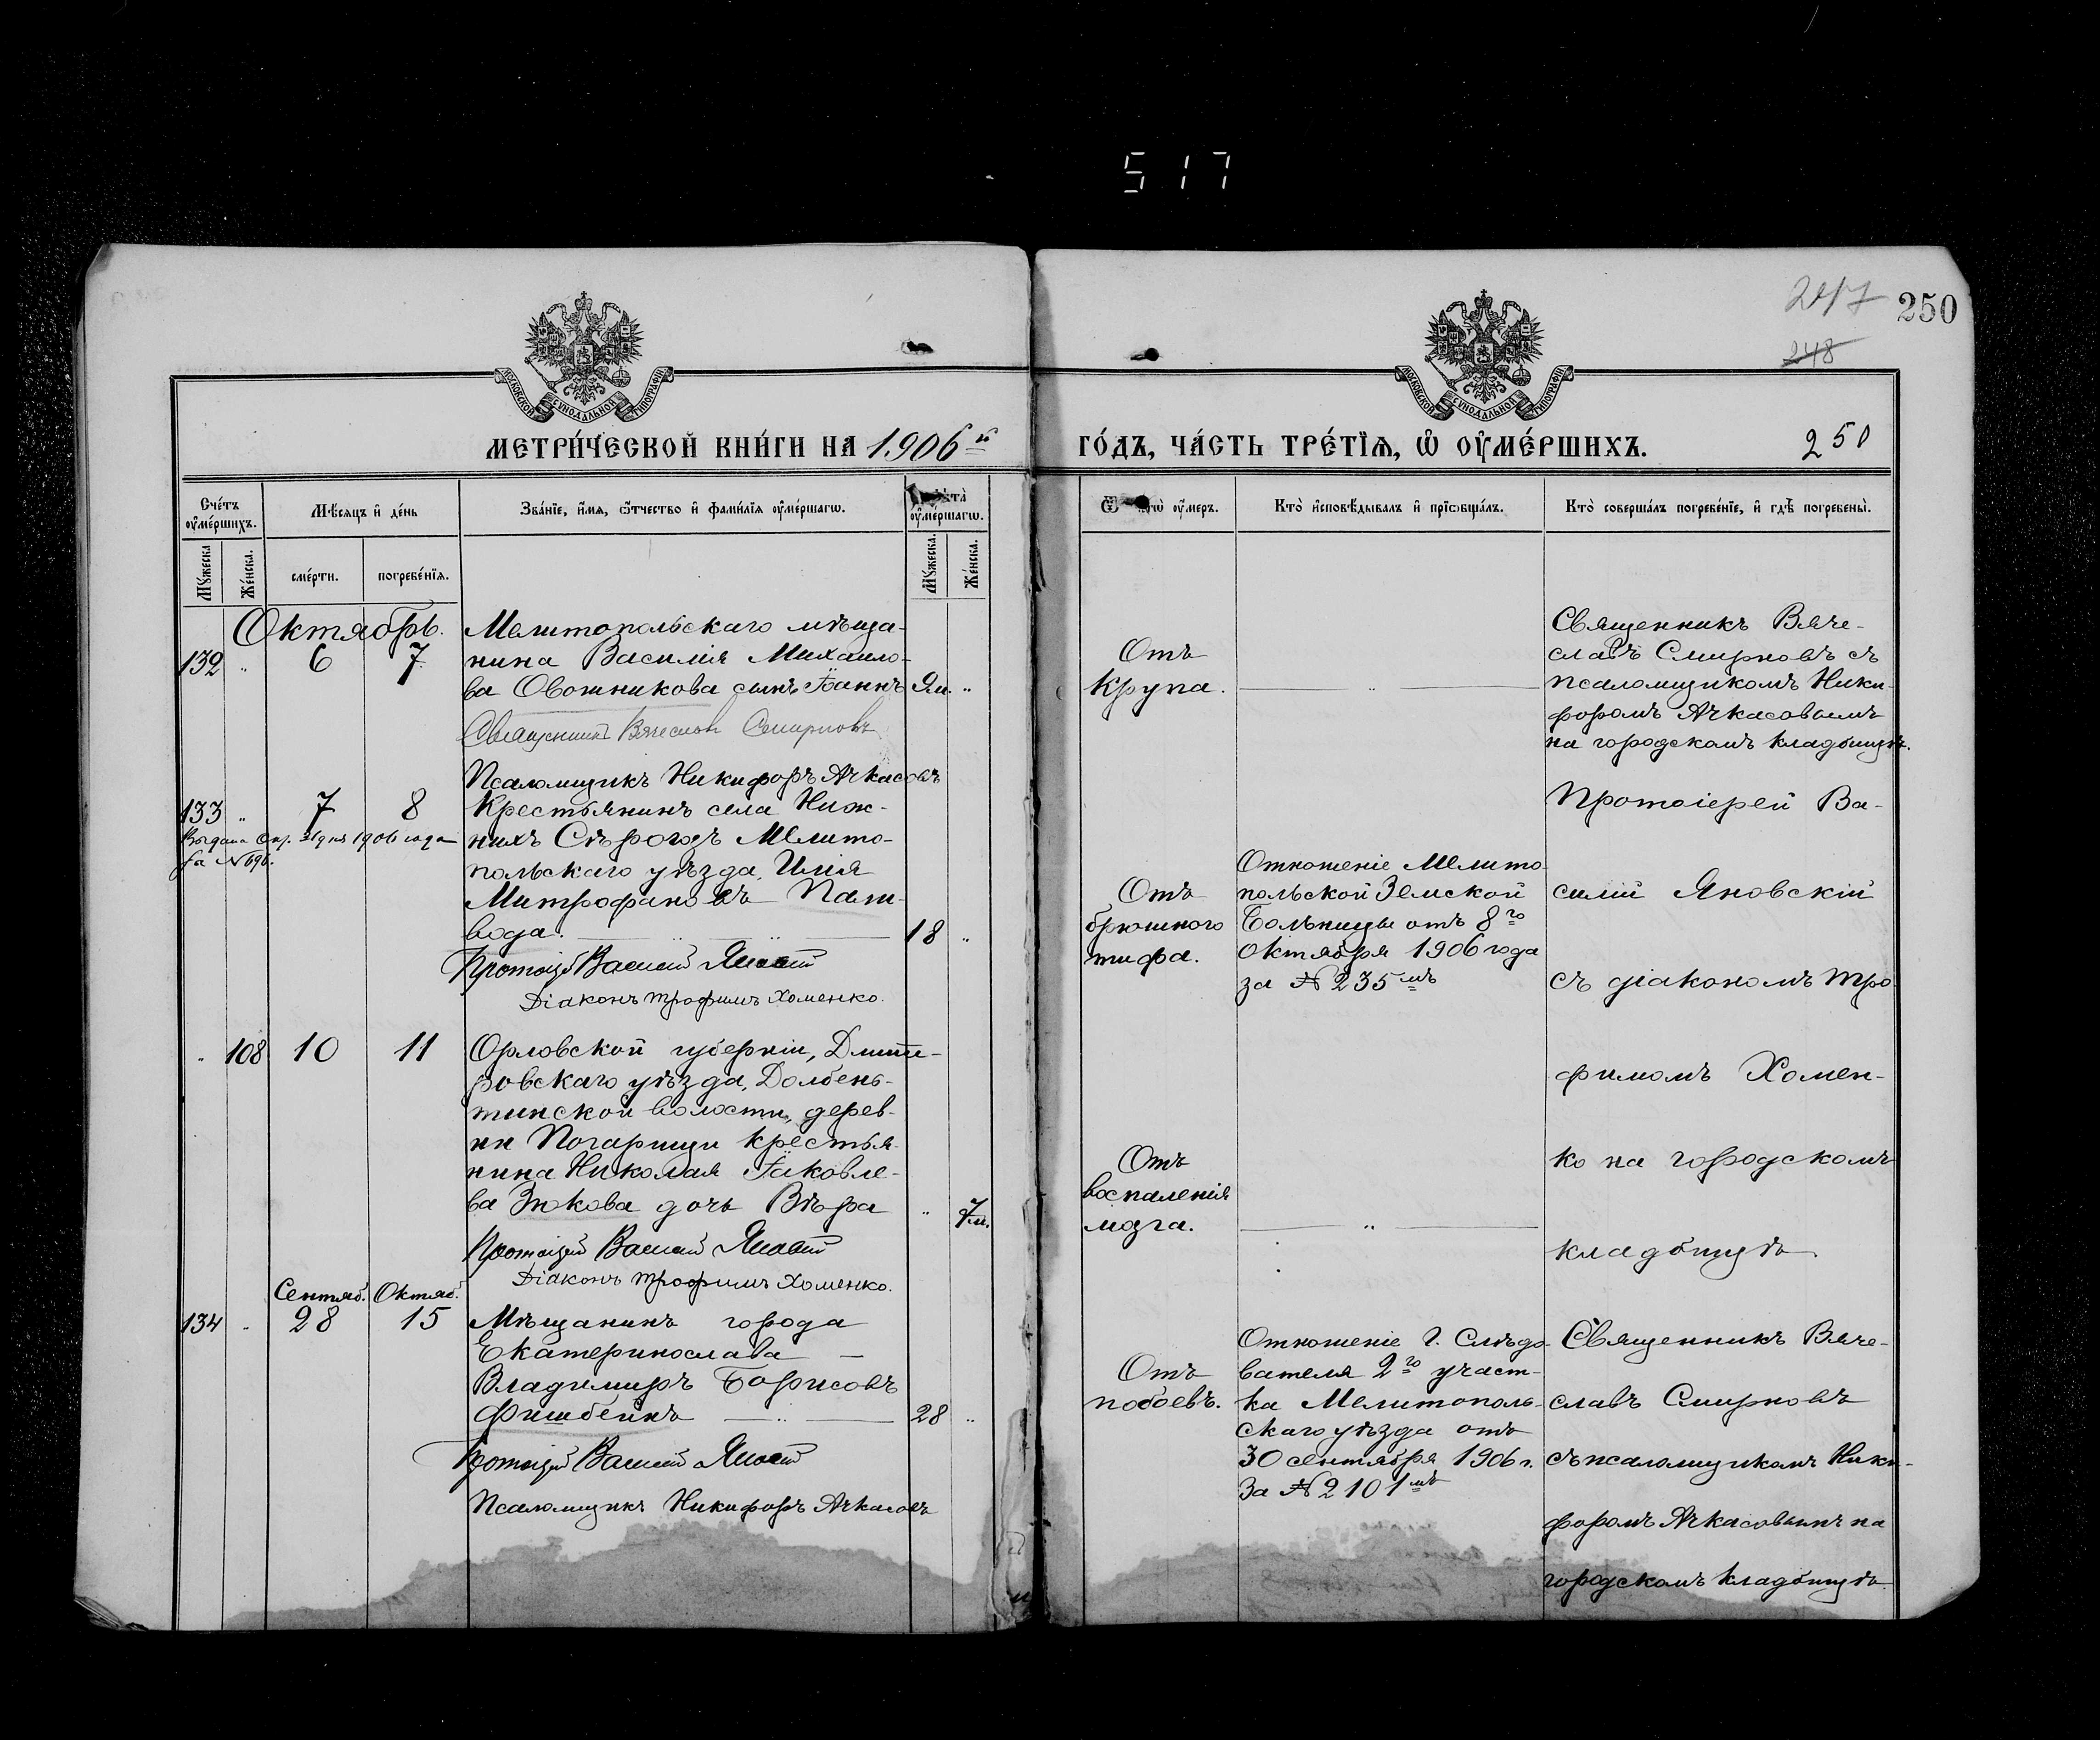 517
247
250
248
МОСКОВСКОЙ СУНОДАЛЬНОЙ ТИПОГРАФІИ
МОСКОВСКОЙ СУНОДАЛЬНОЙ ТИПОГРАФІИ
МЕТРИ́ЧЕСКОЙ КНИ́ГИ НА 1906й
ГО́ДЪ, ЧА́СТЬ ТРЕ́ТЇѦ, Ѽ ОУ҆МЕ́РШИХЪ.
250
Сче́тъ оу҆ме́ршихъ.
Мѣ́сяцъ и҆ де́нь
Зва́нїе, и҆́мя, ѻ҆́тчество и҆ фами́лїя оу҆ме́ршагѡ.
Лѣ́та оу҆ме́ршагѡ.
Мꙋ́жеска
Же́нска.
сме́рти.
погребе́нїѧ.
Мꙋ́жеска.
Же́нска.
оу҆́меръ.
Кто̀ и҆сповѣ́дывалъ и҆ прїѡбща́лъ.
Кто̀ соверша́лъ погребе́нїе, и҆ гдѣ̀ погребены̀.
Октябрь.
132 " 6 7
Мелитопольскаго мѣща-
нина Василія Михаило-
ва Овошникова сынъ Іоаннъ 9м. "
Священникъ Вячеславъ Смирновъ
Псаломщикъ Никифоръ Ачкасовъ
Отъ
крупа.
Священникъ Вяче-
славъ Смирновъ съ
псаломщикомъ Ники-
форомъ Ачкасовымъ
на городскомъ кладбищѣ.
133 " 7 8
1906 года
за №696.
Крестьянинъ села Ниж-
нихъ Сѣрогозъ Мелито-
польскаго уѣзда, Илія
Митрофановъ Пали-
вода. 18 "
Протоіерей Василій Яновскій
Діаконъ Трофимъ Хоменко.
Отъ
брюшного
тифа.
Отношеніе Мелито-
польской Земской
Больницы отъ 8го
октября 1906 года
за № 235мъ
Протоіерей Ва-
силій Яновскій
съ діакономъ Тро-
фимомъ Хомен-
ко на городскомъ
кладбищѣ.
" 108 10 11
Орловской губерніи, Дмит-
ровскаго уѣзда, Долбень-
кинской волости, дерев-
ни Погарищи крестья-
нина Николая Іаковле-
ва Зюкова дочь Вѣра " 7м.
Протоіерей Василій Яновскій
Діаконъ Трофимъ Хоменко.
Отъ
воспаленія
мозга.
Сентяб. Октяб.
134 " 28 15
Мѣщанинъ города
Екатеринослава —
Владимиръ Борисовъ
Фишбейнъ 28 "
Протоіерей Василій Яновскій
Псаломщикъ Никифоръ Ачкасовъ
Отъ
побоевъ.
Отношеніе Г. Слѣдо-
вателя 2го участ-
ка Мелитополь-
скаго уѣзда отъ
30 сентября 1906 г.
за № 2101мъ
Священникъ Вяче-
славъ Смирновъ
съ псаломщикомъ Ники-
форомъ Ачкасовымъ на
городскомъ кладбищѣ